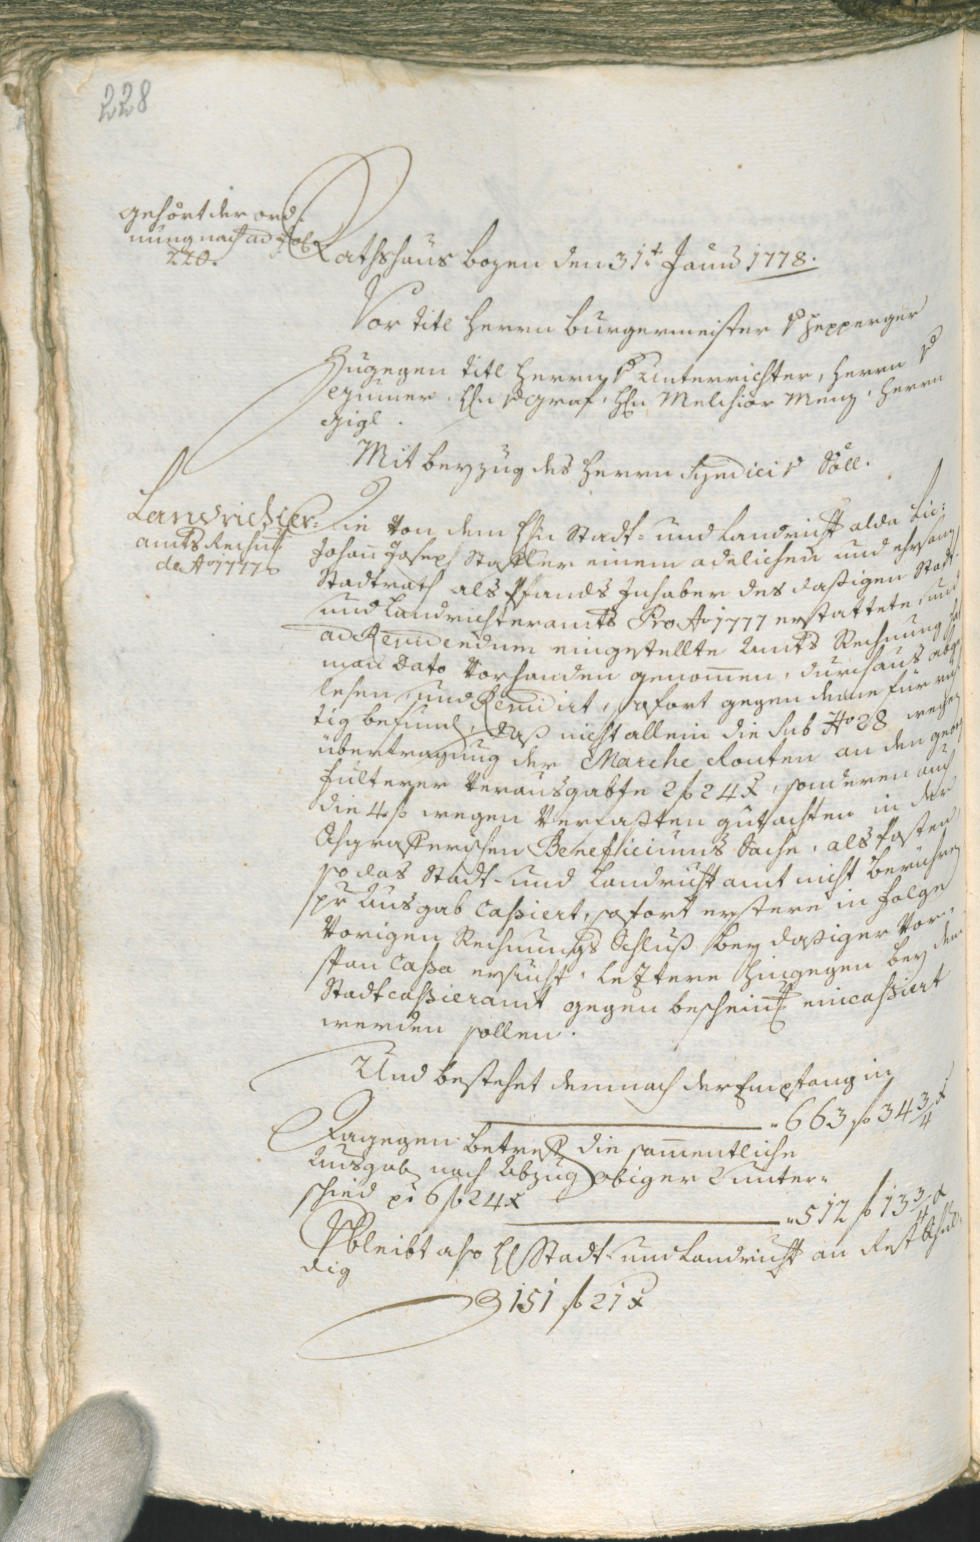 228
gehört der ord-
nung nach ad Fol:
220.
Rathshaus Bozen den 31.t Jenner 1778.
Vor titl Herrn Burgermeister v Hepperger
Zugegen titl Herrn v Unterrichter, Herrn v
Zeyuner, Hn v Graf, Hn Melchior Menz, Herrn
Gigl.
Mit beyzug des Herrn Syndici v Söll.
Landrichter-
amts Rechnung
de Ao 1777
Die von dem Hn Stadt- und Landrichter alda Lic:
Johann Joseph Stapler einem adelichen und ehrsamen
Stadtrath als Pfands Inhaber des dasigen Stadt-
und Landrichteramts Pro Ao 1777 erstattete, und
ad Revidendum eingestellte Amts Rechnung hat
man dato vorhanden genommen, durchaus abge-
lesen, und Revidirt, sofort gegen deme für rich-
tig befunden, daß nicht allein die sub No 28 wegen
übertragung der Marche Routen an den
verausgabte 2 f 24 x, sonderen auch
die 4 f wegen verfaßten gutachten in der
Beneficiums Sache, als Posten
so das Stadt- und Landrichteramt nicht berühren
pr Ausgab Cassiert, sofort erstere in folge
vorigen Rechnungs Schluß bey dasiger Vor-
span Cassa ersucht, leztere hingegen bey dem
Stadtcassieramt gegen bescheinung eincassiert
werden sollen.
Und bestehet demnach der Empfang in
663 f 34 3/4 x
Dagegen betreft die sammentliche
Ausgab nach Abzug obiger 2 unter-
schied pr 6 f 24 x
512 f 13 3/4 x
Verbleibt also H Stadt- und Landrichter an Rest Schul-
dig
151 f 21 x